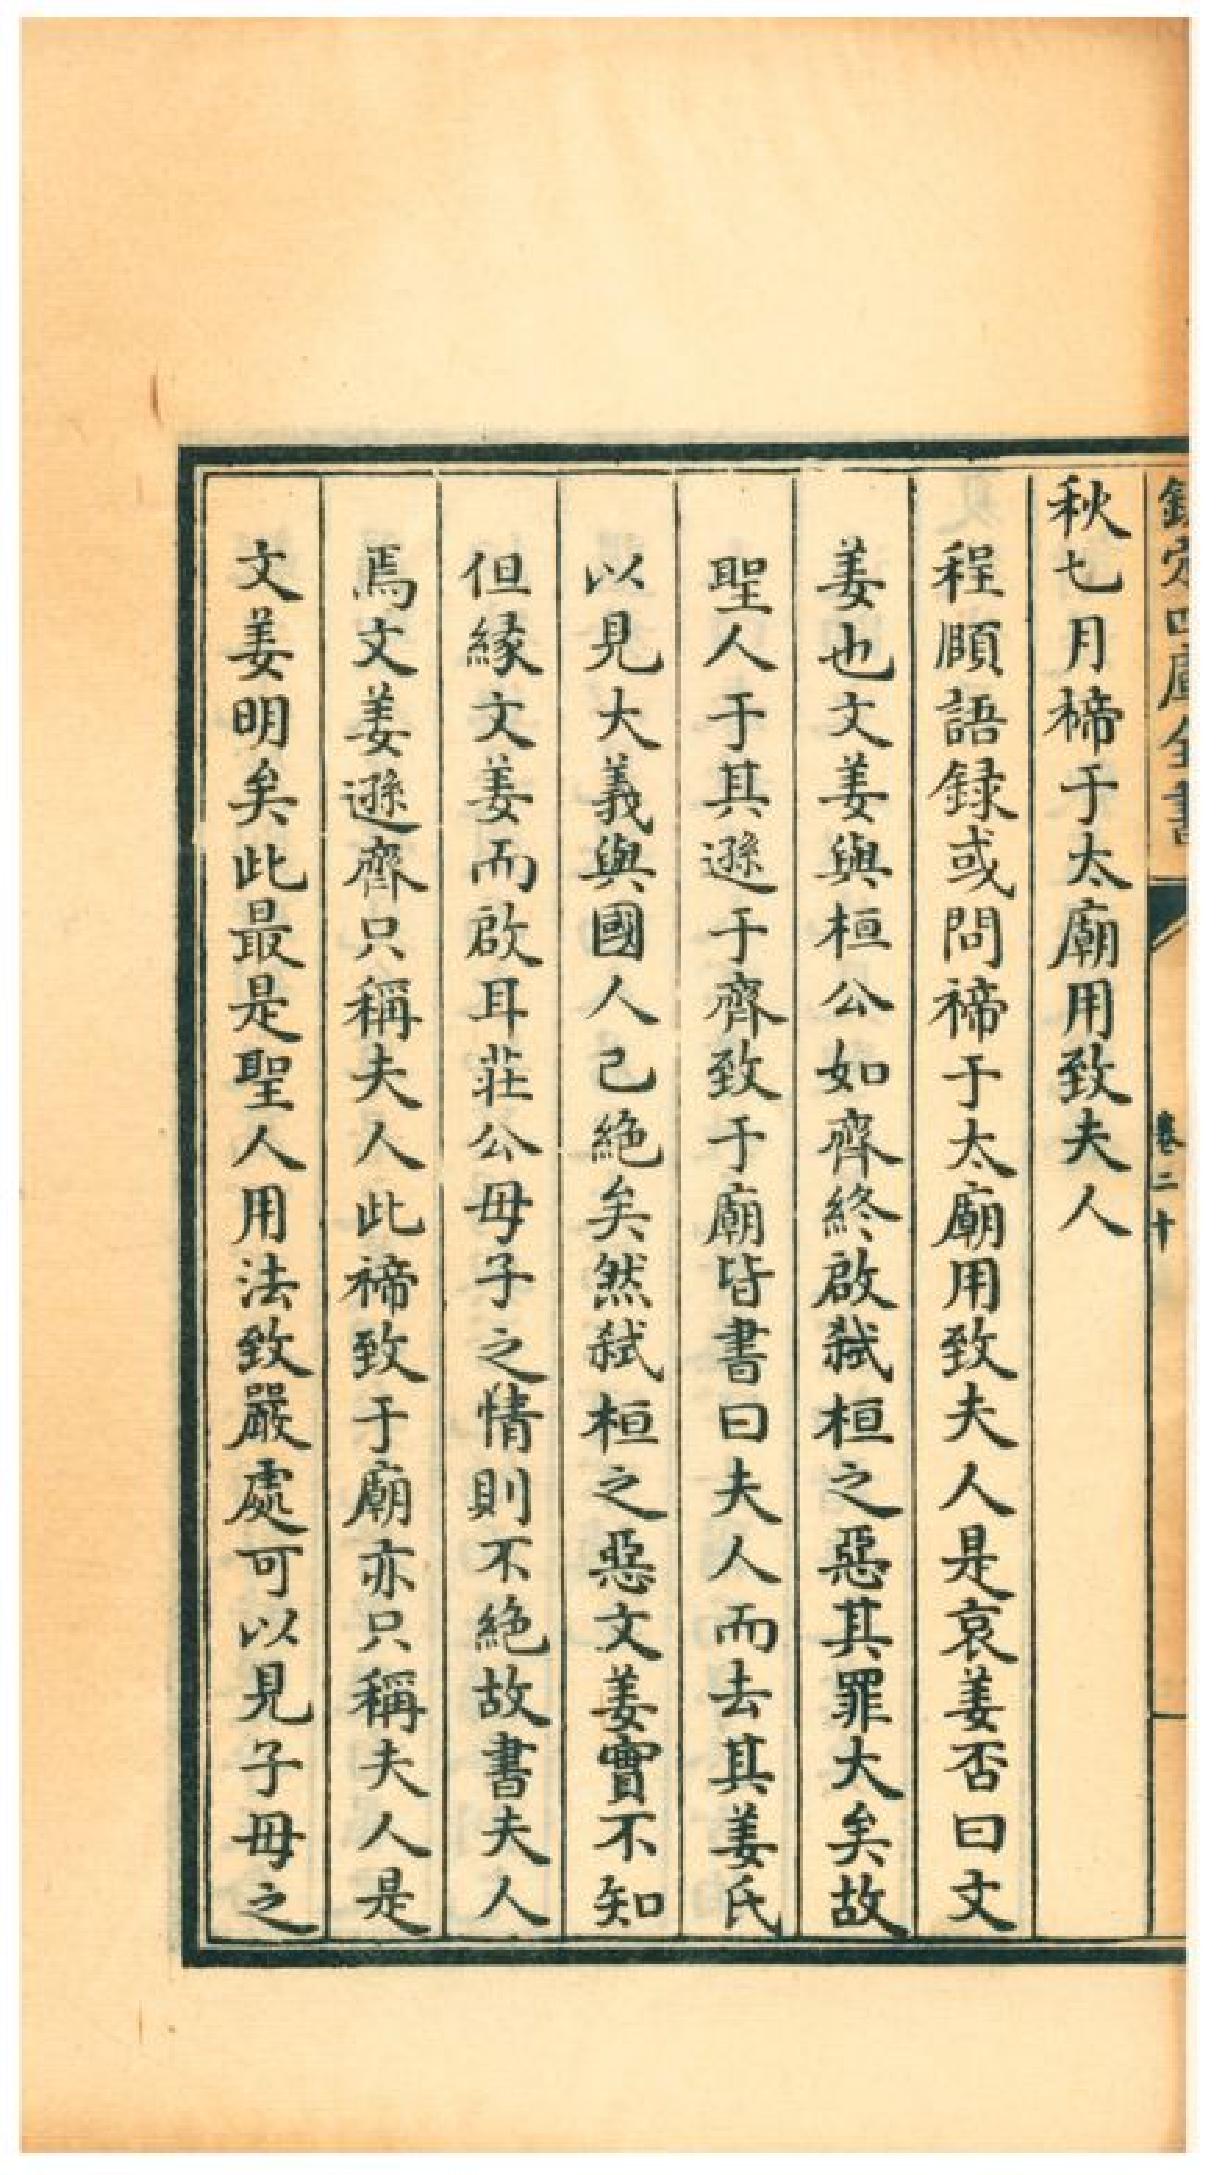 欽定四庫全書
卷二十
秋七月禘于太廟用致夫人
程頤語録或問禘于太廟用致夫人是哀姜否曰文
姜也文姜與桓公如齊終啟弑桓之惡其罪大矣故
聖人于其遜于齊致于廟皆書曰夫人而去其姜氏
以見大義與國人己絶矣然弑桓之惡文姜實不知
但緣文姜而啟耳莊公母子之情則不絶故書夫人
焉文姜遜齊只稱夫人此禘致于廟亦只稱夫人是
文姜明矣此最是聖人用法致嚴處可以見子母之